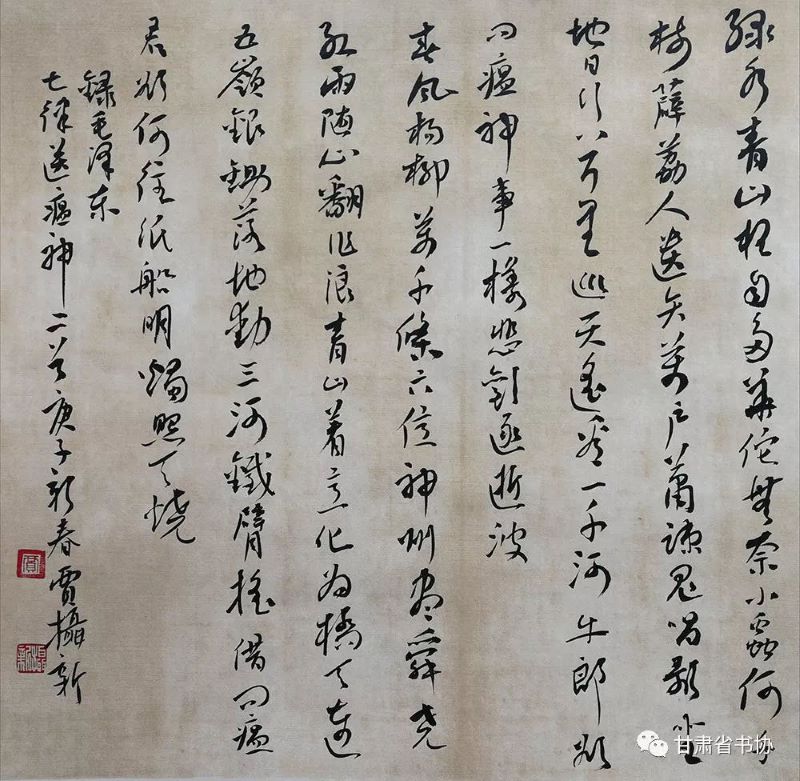 绿水青山枉自多華佗無奈小蟲何千
村薜荔人遗矢萬户蕭疎鬼唱歌坐
地日行八万里巡天遥看一千河牛郎欲
问瘟神事一樣悲欢逐逝波
春风杨柳萬千條六億神州尽舜尧
红雨随心翻作浪青山着意化为橋天连
五嶺銀鋤落地動三河鐵臂摇借问瘟
君欲何往纸船明燭照天烧
録毛泽东
七律送瘟神二首庚子新春賈攝新
甘肃省书协